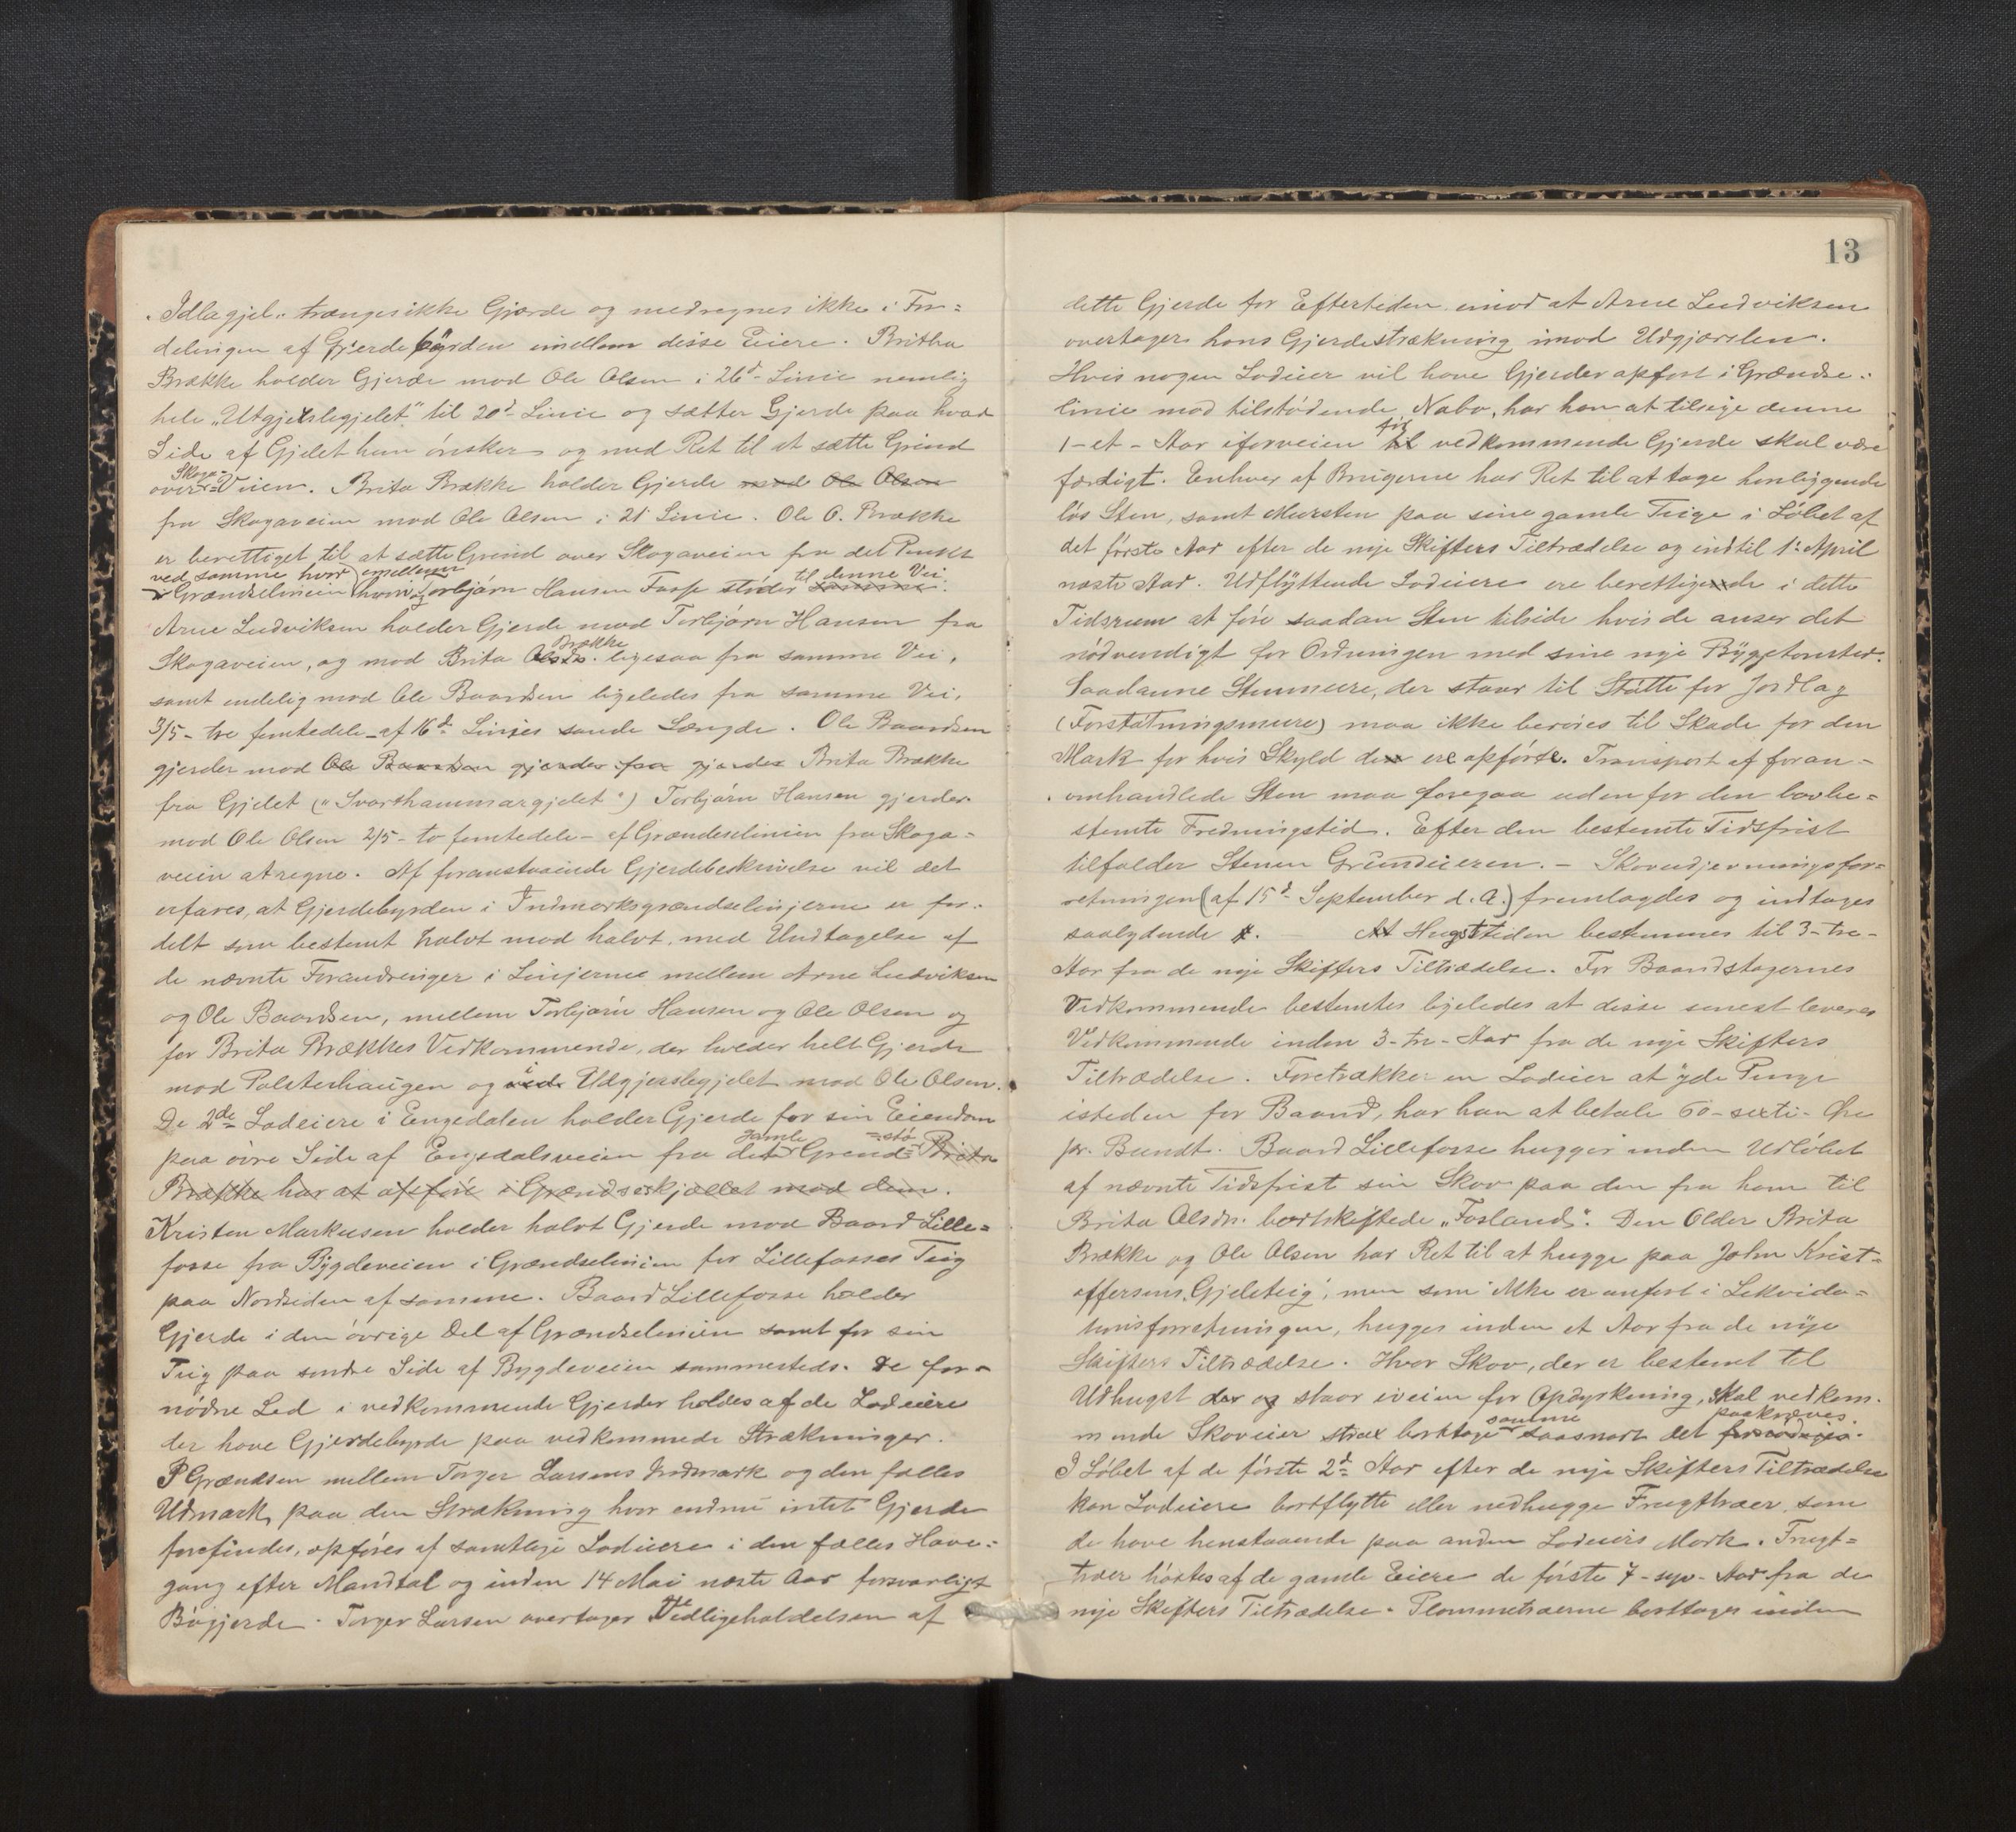 "Idlagjel" trænges ikke Gjærde og medregnes ikke i For=
delingen af Gjerdebyrden imellom disse Eiere. Britha
Brække holder Gjerde mod Ole Olsen i 26d Linie nemlig
hele "Utgjerslegjelet" til 20d Linie og sætter Gjerde paa hvad
Side af Gjelet hun ønsker og med Ret til at sætte Grind
over Skoga=Veien. Brita Brække holder Gjerde mod Ole Olsen
fra Skogaveien mod Ole Olsen i 21 Linie. Ole O. Brække
er berettiget til at sætte Grind over Skogaveien fra det Punkt
ved samme hvor emellem
i Grændselinien hvori og Torbjørn Hansen Fosse støder til denne Vei samme.
Arne Ludviksen holder Gjerde mod Torbjørn Hansen fra
Skogaveien, og mod Brita Olsdr. Brække ligesaa fra samme Vei,
samt endelig mod Ole Baardsen ligeledes fra samme Vei,
3/5 - tre femtedele - af 16d Linies samde Længde. Ole Baardsen
gjerder mod Ole Baardsen gjerder fra gjerder Brita Brække
fra Gjelet ("Svarthammargjelet") Torbjørn Hansen gjerder
mod Ole Olsen 2/5 - to femtedele - af Grændeselinien fra Skoga=
veien at regne. Af foranstaaende Gjerdebeskrivelse vil det
erfares, at Gjerdebyrden i Indmarksgrændselinjerne er for=
delt som bestemt halvt mod halvt, med Undtagelse af
de nævnte Forandringer i Linjerne mellem Arne Ludviksen
og Ole Baardsen, mellem Torbjørn Hansen og Ole Olsen og
for Brita Brækkes Vedkommende, der holder helt Gjerde
mod Polsterhaugen og ved i Udgjerslegjelet mod Ole Olsen.
De 2de Lodeiere i Engedalen holder Gjerde for sin Eiendom
paa øvre Side af Engedalsveien fra det gamle Grend=stø Brita
Brække har at opføre i Grændseskjellet mod dem.
Kristen Markusen holder halvt Gjerde mod Baard Lille=
fosse fra Bygdeveien i Grændselinien for Lillefosses Teig
paa Nordsiden af samme. Baard Lillefosse holder
Gjerde i den øvrige Del af Grændselinien samt for sin
Teig paa søndre Side af Bygdeveien sammesteds. De for=
nødne Led i vedkommende Gjerder holdes af de Lodeiere
der have Gjerdebyrde paa vedkommede Strækninger.
I Grændsen mellem Torger Larsens Indmark og den fælles
Udmark, paa den Strækning hvor endnu intet Gjerde
forefindes, opføres af samtlige Lodeiere i den fælles Havne=
gang efter Mandtal og inden 14 Mai næste Aar forsvarligt
Bøgjerde. Torger Larsen overtager Vedligeholdelsen af
13
dette Gjerde for Eftertiden imod at Arne Ludviksen
overtager hans Gjerdestrækning imod Udgjærslen.
Hvis nogen Lodeier vil have Gjerder opført i Grændse=
linie mod tilstødende Nabo, har han at tilsige denne
1 - et - Aar iforveien før til vedkommende Gjerde skal være
færdigt. Enhver af Brugerne har Ret til at tage henliggende
løs Sten, samt Mursten paa sine gamle Teige i Løbet af
det første Aar efter de nye Skifters Tiltrædelse og indtil 1. April
næste Aar. Udflyttende Lodeiere ere berettigende i dette
Tidsrum at føre saadan Sten tilside hvis de anser det
nødvendigt for Ordningen med sine nye Byggetomter.
Saadanne Stenmure, der staar til Støtte for Jordlag
(Forstøtningsmure) maa ikke berøves til Skade for den
Mark for hvis Skyld den ere opførte. Transport af foran=
omhandlede Sten maa foregaa udenfor den lovbe=
stemte Fredningstid. Efter den bestemte Tidsfrist
tilfalder Stenen Grundeieren. - Skovudjevningsfor=
retningen (af 15d September d. A.) fremlagdes og indtages
saalydende. At Hugsttiden bestemmes til 3 - tre -
Aar fra de nye Skifters Tiltrædelse. For Baandstagernes
Vedkommende bestemtes ligeledes at disse senest leveres
Vedkommende inden 3 - tre - Aar fra de nye Skifters
Tiltrædelse. Foretrækker en Lodeier at yde Penge
isteden for Baand, har han at betale 60 - sexti - Øre
pr. Bundt. Baard Lillefosse hugger inden Udløbet
af nævnte Tidsfrist sin Skov paa den fra ham til
Brita Olsdr. bortskiftede "Fosland". Den Older Brita
Brække og Ole Olsen har Ret til at hugge paa John Krist=
offersens "Gjeleteig", men som ikke er anført i Lekvida=
tionsforretningen, hugges inden et Aar fra de nye
Skifters Tiltrædelse. Hvor Skov, der er bestemt til
Udhugst der og staar iveien for Opdyrkning, skal vedkom=
mende Skoveier strax borttage samme saasnart det paakræves forlanges.
I Løbet af de første 2d Aar efter de nye Skifters Tiltrædelse
kan Lodeiere bortflytte eller nedhugge Frugttræer, som
de have henstaaende paa anden Lodeiers Mark. Frugt=
træer høstes af de gamle Eiere de første 7 - syv - Aar fra de
nye Skifters Tiltrædelse. Plommetræerne borttages inden